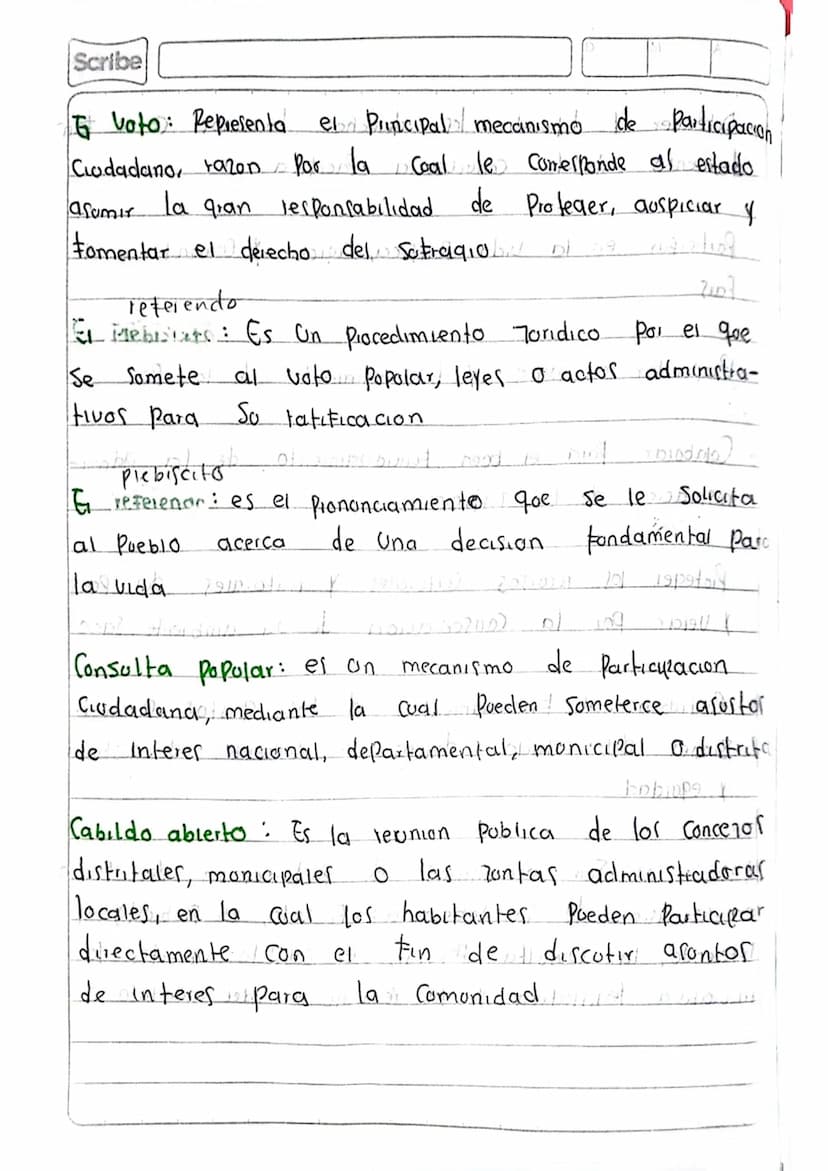 Scribe
El Voto: Representa el Principal mecanismo de Participacion
Ciudadana, razon Por la Cual le Corresponde al estado
asumir la gran responsabilidad de Proteger, auspiciar y
fomentar el derecho del sufragio
referendo
El Plebiscito: Es Un Procedimiento Juridico Por el que
Se Somete al Voto Popular, leyes o actos administra-
tivos Para Su ratificacion
plebiscito
El referendo: es el Pronunciamiento que se le Solicita
al Pueblo acerca de Una decision fundamental Para
la vida
Consulta Popular: es un mecanismo de Participacion
Ciudadana, mediante la cual Pueden Someterce asustos
de interes nacional, departamental, municipal o distrita
Cabildo abierto: Es la reunion publica de los Concejos
distritales, municipales o las Juntas administradoras
locales, en la cual los habitantes Pueden Participar
directamente con el fin de discutir asuntos
de interes para la Comunidad